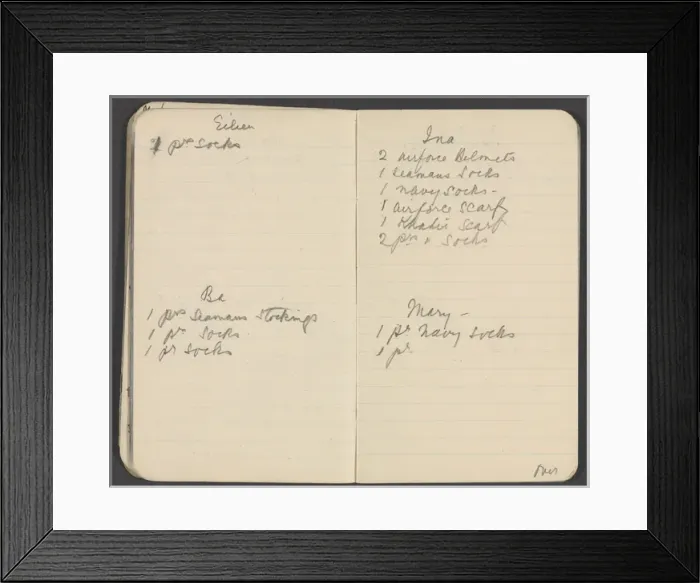 Eileen
prs socks
Ba
1 prs Seamans Stockings
1 pr Socks
1 pr Socks
Ina
2 airforce Helmets
1 Seamans Socks
1 navy Socks -
1 airforce Scarf
1 Khaki Scarf
2 prs " Socks
Mary -
1 pr Navy Socks
1 pr
Over